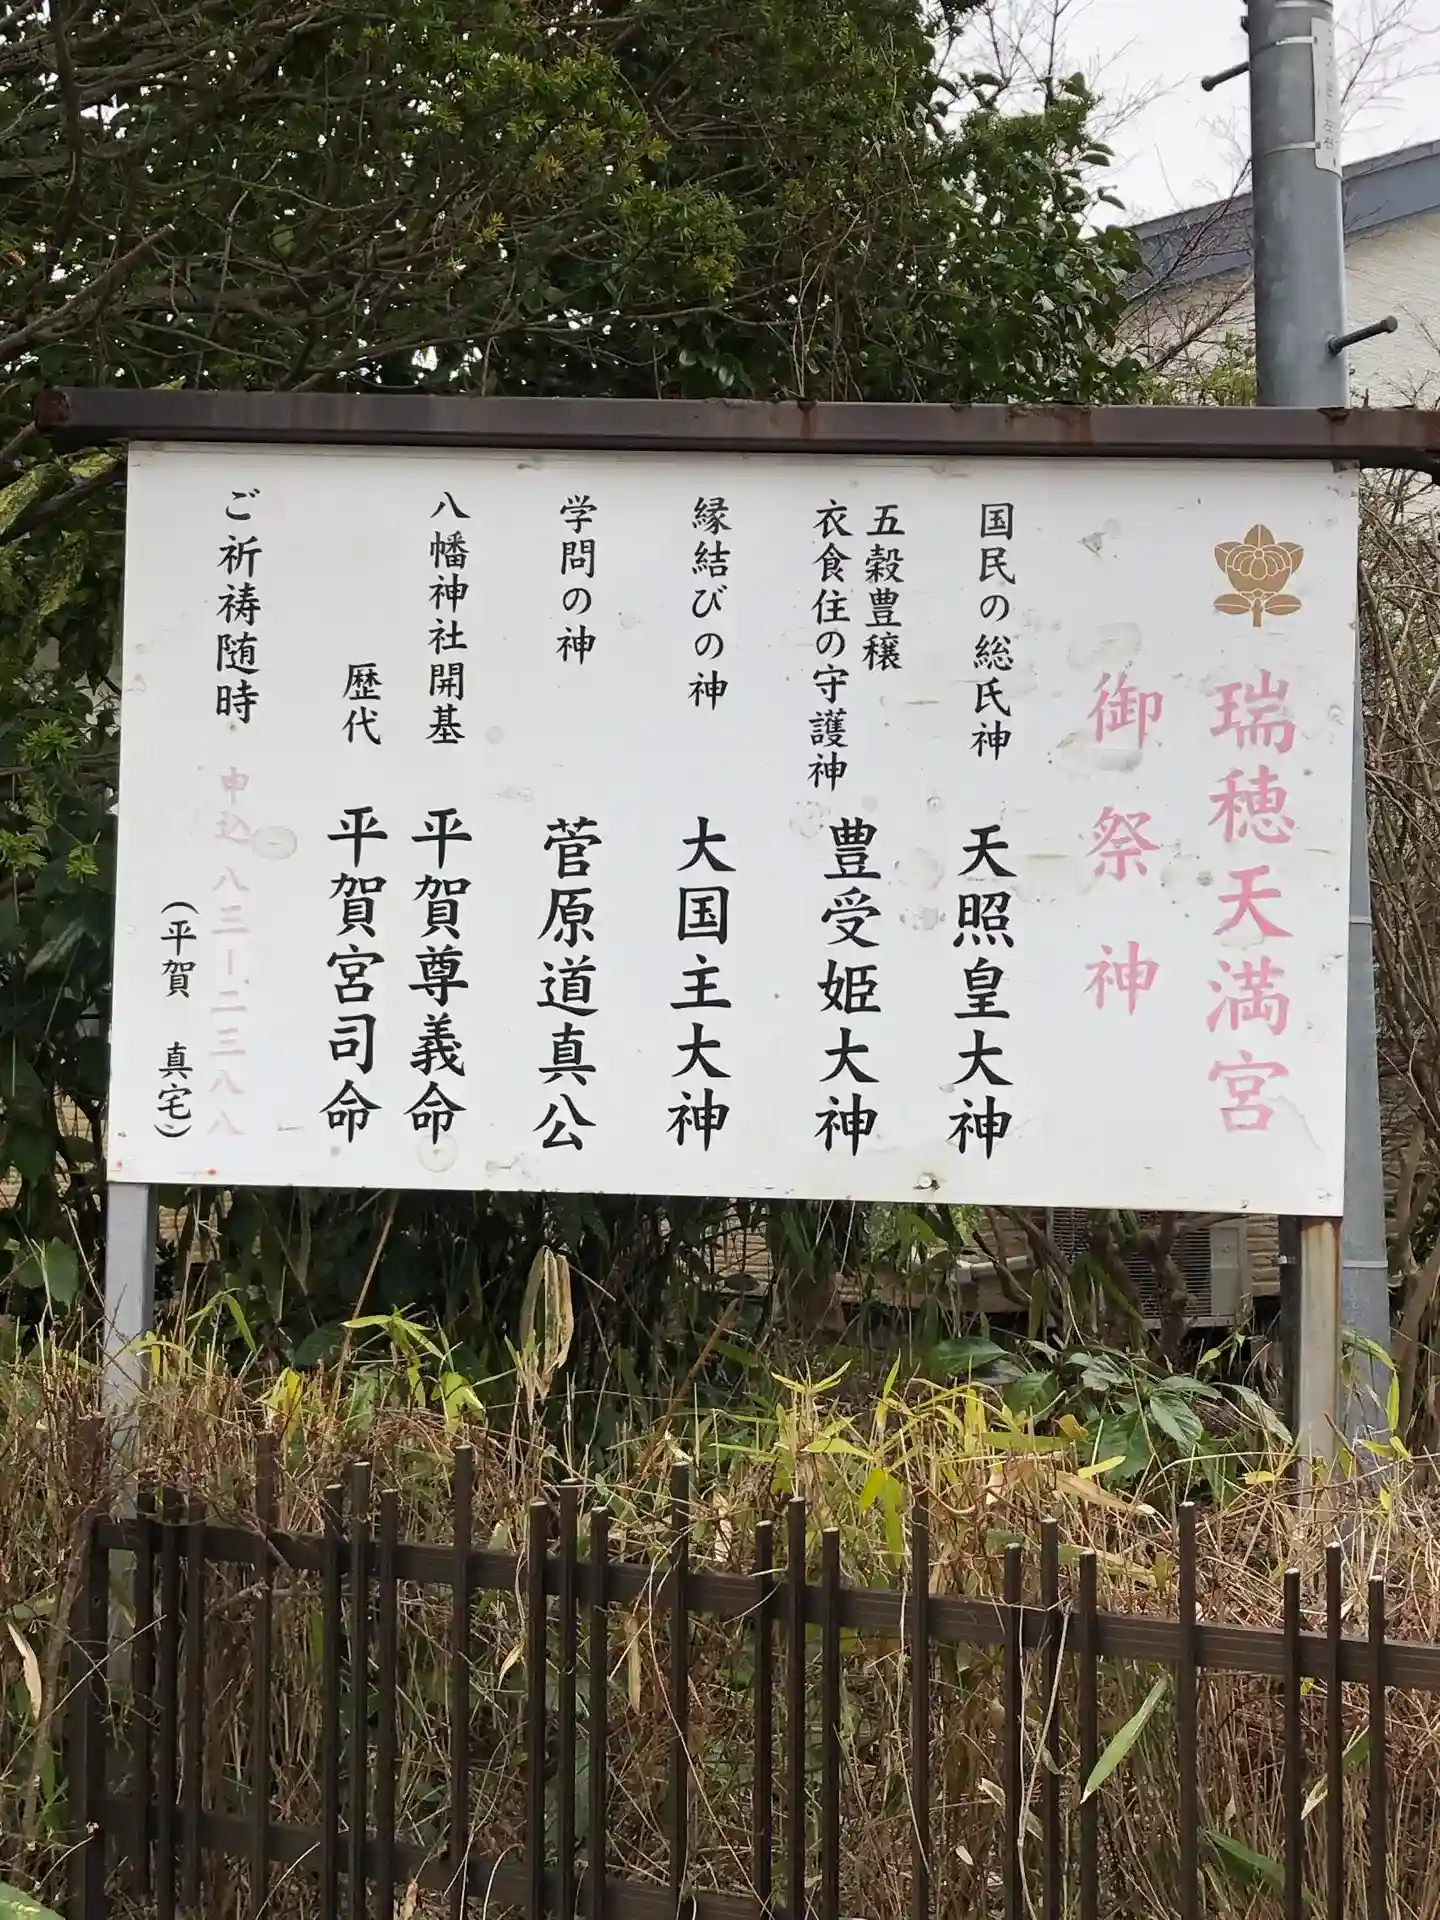 瑞穂天満宮
御祭神
国民の総氏神 天照皇大神
五穀豊穣
衣食住の守護神 豊受姫大神
縁結びの神 大国主大神
学問の神 菅原道真公
八幡神社開基 平賀尊義命
歴代 平賀宮司命
ご祈祷随時 申込八三ー二三八八
(平賀 真宅)